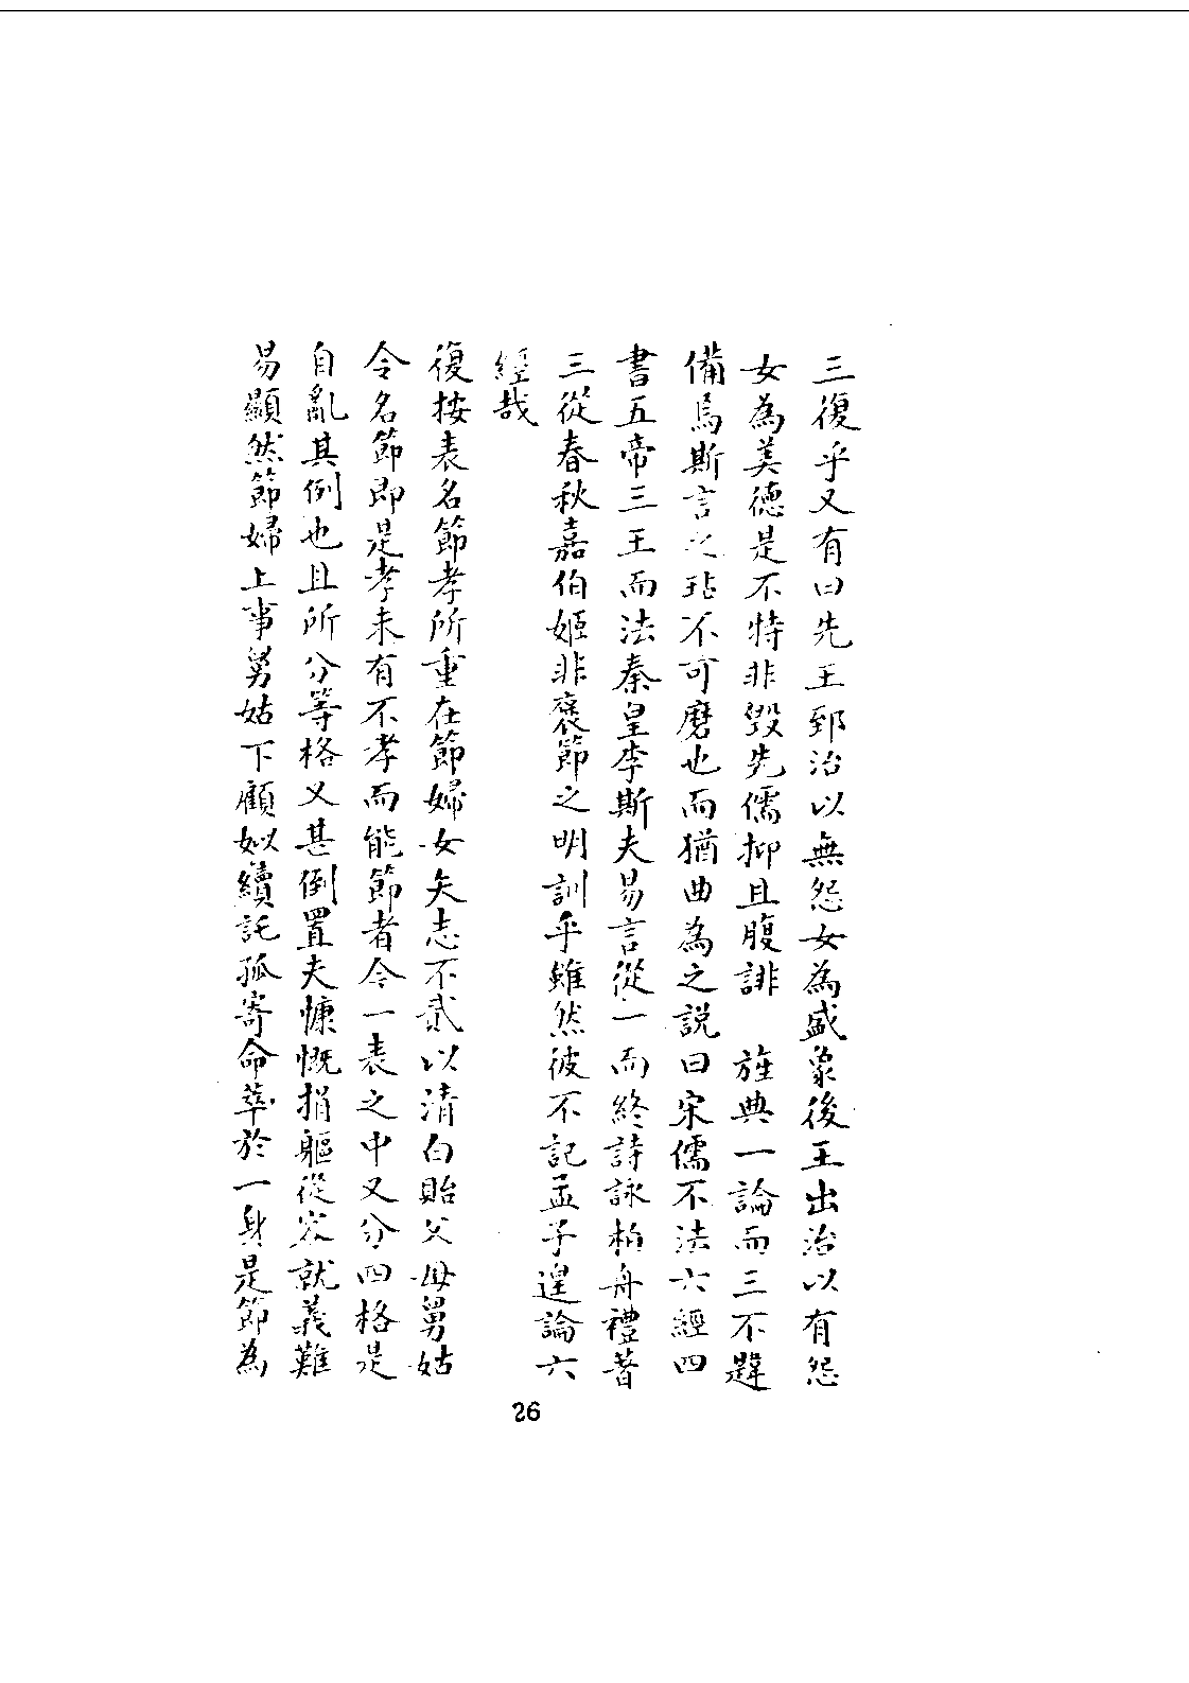 三復乎又有曰先王郅治以無怨女為盛象後王出治以有怨
女為美德是不特非毀先儒抑且腹誹 旌典一論而三不韙
備焉斯言之玷不可磨也而猶曲為之説曰宋儒不法六經四
書五帝三王而法秦皇李斯夫易言從一而終詩詠柏舟禮著
三從春秋嘉伯姬非襃節之明訓乎雖然彼不記孟子遑論六
經哉
復按表名節孝所重在節婦女矢志不貳以清白貽父母舅姑
令名節即是孝未有不孝而能節者今一表之中又分四格是
自亂其例也且所分等格又甚倒置夫慷慨捐軀從容就義難
易顯然節婦上事舅姑下顧姒續託孤寄命萃於一身是節為
26